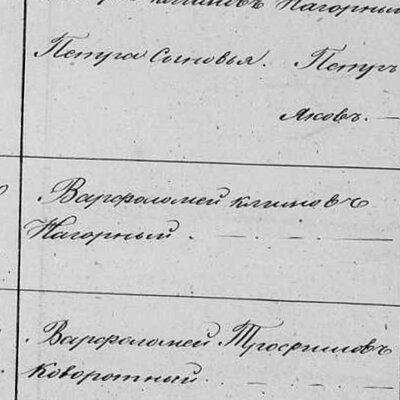 Климовъ Нагорный
Петра Сыновья. Петръ
Яковъ.
Варфоломей Климовъ
Нагорный.
Варфоломей Трофимовъ
Коворотный.